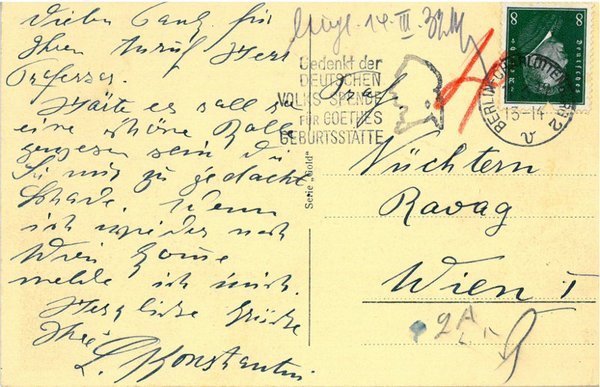 Vielen Dank für
Ihren Anruf Herr
Professor.
Hätte es soll so
eine schöne Rolle
gewesen sein die
Sie mir zu gedacht
Schade. Wenn
ich wieder nach
Wien komme
melde ich mich.
Herzliche Grüsse
Ihre
L. Konstantin
14. III. 32
Gedenkt der
DEUTSCHEN
VOLKS-SPENDE
FÜR GOETHES
GEBURTSSTÄTTE
BERLIN-CHARLOTTENBURG 2
13-14
8 8
Deutsches
Prof
Nüchtern
Ravag
Wien I
Serie „Gold"
2A